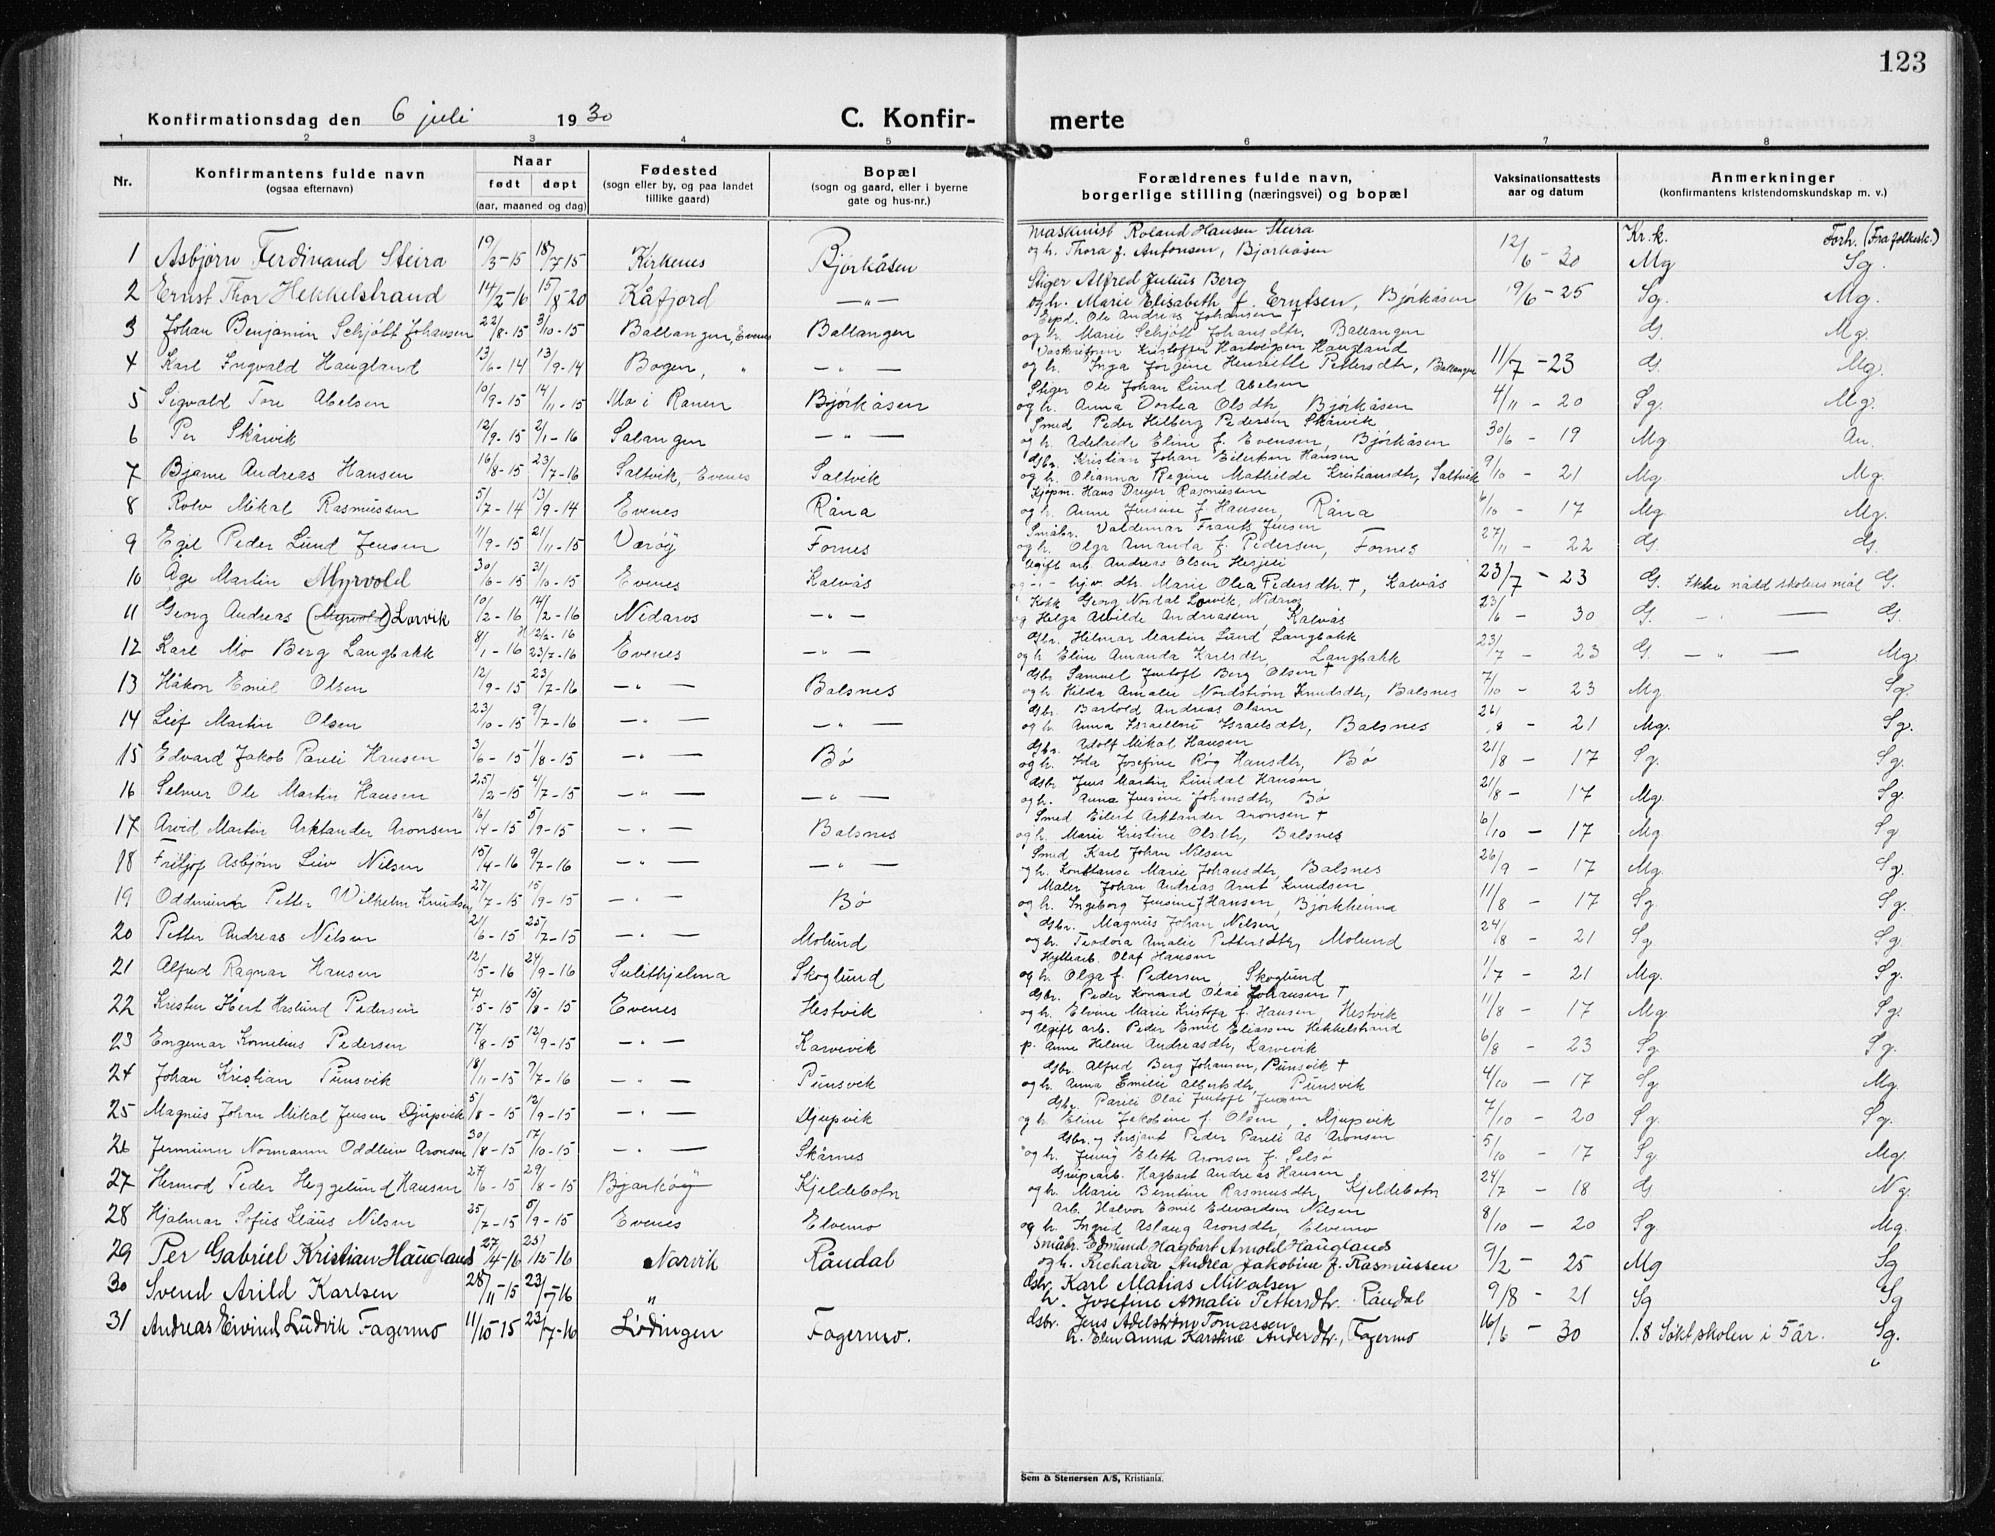 123
Konfirmationsdag den 6 juli 1930 C. Konfir- merte
1 2 3 4 5 6 7 8
Nr. Konfirmantens fulde navn (ogsaa efternavn) Naar født døpt (aar, maaned og dag) Fødested (sogn eller by, og paa landet tillike gaard) Bopæl (sogn og gaard, eller i byerne gate og hus-nr.) Forældrenes fulde navn, borgerlige stilling (næringsvei) og bopæl Vaksinationsattests aar og datum Anmerkninger (konfirmantens kristendomskundskap m. v.)
Maskinist Roland Hansen Steira Kr.k. Forh. (Fra folkesk.)
1 Asbjørn Ferdinand Steira 19/3-15 18/7 15 Kirkenes Bjørkåsen og h. Thora f. Antonsen, Bjørkåsen 12/6-30 Mg Sg.
Stiger Alfred Julius Berg
2 Ernst Thor Hekkelstrand 14/2-16 15/8-20 Kåfjord —"— og h. Marie Elisabeth f. Erntsen, Bjørkåsen 19/6-25 Sg. Mg.
Expd. Ole Andreas Johansen †
3 Johan Benjamin Schjøtt Johansen 22/8-15 3/10-15 Ballangen, Evenes Ballangen og h. Marie Schjøtt Johansdtr. Ballangen G. Mg.
Kristoffer Hartvigsen Haugland
4 Karl Ingvald Haugland 13/6-14 13/9-14 Bogen, " —"— og h. Inga Jørgine Henriette Pettersdtr, Ballangen 11/7-23 G. Mg.
Stiger Ole Johan Lund Abelsen
5 Sigvald Tore Abelsen 10/9-15 14/11-15 Mo i Ranen Bjørkåsen og h. Anna Dortea Olsdtr, Bjørkåsen 4/11-20 Sg. Mg.
Smed Peder Hilberg Pedersen Skårvik
6 Per Skårvik 12/9-15 2/1-16 Salangen —"— og h. Adelaide Eline f. Evensen, Bjørkåsen 30/6-19 Mg. An.
Gbr. Kristian Johan Eilertsen Hansen
7 Bjarne Andreas Hansen 16/8-15 23/7-16 Saltvik, Evenes Saltvik og h. Olianna Regine Mathilde Kristiansdtr, Saltvik 9/10-21 Mg. Mg.
Kjøpm. Hans Dreyer Rasmussen
8 Rolv Mikal Rasmussen 5/7-14 13/9-14 Evenes Råna og h. Anne Jensine f. Hansen, Råna 6/10-17 Mg Mg.
Småbr. Valdemar Frantz Jensen
9 Egil Peder Lund Jensen 11/9-15 21/11-15 Værøy Fornes og h. Olga Amanda f. Pedersen, Fornes 27/11-22 G. G.
Ugift arb. Andreas Olsen
10 Åge Martin Myrvold 30/6-15 31/10-15 Evenes Kalvås —"— hjv. dtr. Marie Olea Pedersdtr. †, Kalvås 23/7-23 G. Ikke nådd skolens mål G.
Kokk Georg Nordal Lorvik, Nidaros
11 Georg Andreas (Myrvold) Lorvik 10/2-16 14/2-16 Nidaros —"— og Helga Alvilde Andreassen, Kalvås 23/6-30 G. —"— G.
Gbr. Hilmar Martin Lund Langbakk
12 Karl Mo Berg Langbakk 8/1-16 H 12/2-16 23/7-16 Evenes —"— og h Eline Amanda Karlsdtr, Langbakk 23/7-23 G. —"— Mg
Gbr Samuel Jentoft Berg Olsen †
13 Håkon Emil Olsen 12/9-15 23/7-16 —"— Balsnes og h. Hilda Amalie Nordstrøm Knudsdtr, Balsnes 7/10-23 Mg Sg.
Gbr. Bartold Andreas Olsen
14 Leif Martin Olsen 23/10-15 9/7-16 —"— —"— og h. Anna Israeline Israelsdtr, Balsnes 26/8-21 Mg. Sg.
Gbr. Adolf Mikal Hansen
15 Edvard Jakob Pareli Hansen 3/6-15 1/8-15 —"— Bø og h. Ida Josefine Røg Hansdtr, Bø 21/8-17 Sg. Sg.
Gbr. Jens Martin Lundal Hansen
16 Selmer Ole Martin Hansen 25/2-15 4/7-15 —"— —"— og h. Anna Jensine Johnsdtr, Bø 21/8-17 Mg. Sg.
Smed Eilert Arktander Aronsen †
17 Arvid Martin Arktander Aronsen 16/4-15 5/9-15 —"— Balsnes og h. Marie Kristine Olsdtr, Balsnes 6/10-17 Mg. Sg
Smed Karl Johan Nilsen
18 Fritjof Asbjørn Liev Nilsen 15/4-16 9/7-16 —"— —"— og h. Konstanse Marie Johansdtr, Balsnes 26/9-17 Mg. Sg.
Maler Johan Andreas Arnt Knudsen
19 Oddmunn Petter Wilhelm Knudsen 27/7-15 15/9-15 —"— Bø og h. Ingeborg Jensine f Hansen, Bjørkheima 11/8-17 Sg. Sg.
Gbr. Magnus Johan Nilsen
20 Petter Andreas Nilsen 21/6-15 25/7-15 —"— Molund og h. Teodora Amalie Pettersdtr, Molund 24/8-21 Sg. Sg.
Hyttearb. Olaf Hansen
21 Alfred Ragnar Hansen 12/5-16 24/9-16 Sulithjelma Skoglund og h. Olga f. Pedersen, Skoglund 1/7-21 Mg. Sg.
Gbr. Peder Konrad Olai Johansen †
22 Kristen Hert Haslund Pedersen 7/5-15 15/8-15 Evenes Hestvik og h. Elvine Marie Kristofa f. Hansen, Hestvik 11/8-17 Mg. Sg.
Ugift arb. Peder Emil Eliassen Hekkelstrand
23 Engemar Kornelius Pedersen 17/8-15 12/9-15 —"— Karvevik p. Anne Helene Andreasdtr, Karvevik 6/8-23 Sg. Sg.
Gbr. Alfred Berg Johansen, Punsvik †
24 Johan Kristian Punsvik 18/11-15 9/7-16 —"— Punsvik og h. Anna Emilie Albertsdtr, Punsvik 4/10-17 Sg. Mg.
Gbr. Pareli Olai Jentoft Jensen
25 Magnus Johan Mikal Jensen Djupvik 5/8-15 12/9-15 —"— Djupvik og h. Eline Jakobine f. Olsen, Djupvik 7/10-20 Sg. Sg.
Gbr. og Sersjant Peder Pareli As Aronsen
26 Jermunn Normann Oddleiv Aronsen 30/8-15 17/10-15 —"— Skårnes og h. Jenny Eleth Aronsen f. Selsø 5/10-17 Sg. Mg.
Grubearb. Hagbart Andreas Hansen
27 Hermod Peder Heggelund Hansen 27/6-15 29/8-15 Bjarkøy Kjeldebotn og h. Marie Berntine Rasmusdtr, Kjeldebotn 24/7-18 G Ng.
Arb. Halvor Emil Edvardsen Nilsen
28 Hjalmar Sofus Claus Nilsen 25/7-15 5/9-15 Evenes Elvemo og h. Ingrid Aslaug Aronsdtr, Elvemo 8/10-20 Sg Mg.
Småbr. Edmund Hagbart Arnold Hauglands
29 Per Gabriel Kristian Hauglands 27/4-16 25/12-16 Narvik Råndal og h. Richarda Andrea Jakobine f. Rasmussen 9/2-25 Mg Sg
Gbr. Karl Matias Mikalsen
30 Svend Arild Karlsen 28/11-15 23/7-16 " h. Josefine Amalie Pettersdtr. Råndal 9/8-21 Sg Sg
Gbr. Jens Adelstrøm Tomassen
31 Andreas Eivind Ludvik Fagermo 11/10 15 23/7-16 Lødingen Fagermo. h. Elen Anna Karstine Andersdtr., Fagermo 16/6-30 1.8 Søkt skolen i 5 år. Sg.
"
Sem & Stenersen A/S, Kristiania.